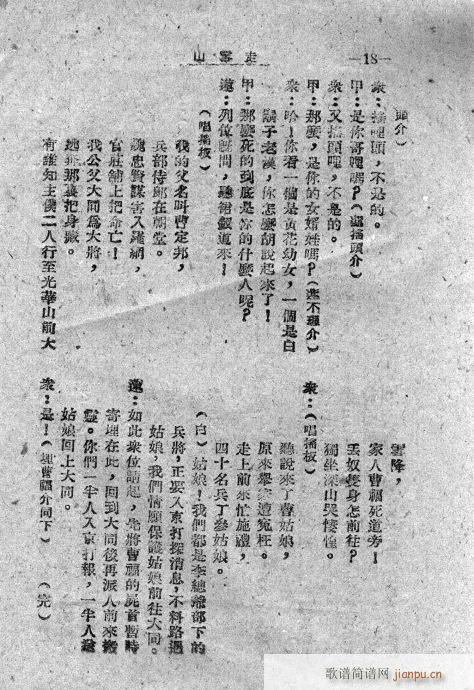 走雪山
—18—
頭介）
衆：搖哩頭，不是的。
甲：是你哥哩嗎？（蓮搖頭介）
衆：又搖頭哩，不是的。
甲：那麼，是你的女婿姓嗎？（蓮不理介）
衆：哈！你看一個是黃花幼女，一個是白
鬍子老漢，你怎麼胡說起來了！
甲：那麼死的到底是你的什麼人呢？
蓮：列位壓問，聽儂敘道來！
（唱搖板）
我的父名叫曹定邦，
兵部侍郎在朝堂。
魏忠賢謀害入羅網，
官莊舖上把命亡！
我公父大同爲大將，
逃難那裏把身藏。
有誰知主僕二人行至光華山前大
雪降，
家人曹福死道旁！
丟奴隻身怎前往？
獨坐深山哭悽惶。
衆：（唱搖板）
聽說來了曹姑娘，
原來舉家遭冤枉。
走上前來忙施禮，
四十名兵丁參姑娘。
（白）姑娘！我們都是李總爺部下的
兵將，正要入京打探消息，不料路遇
姑娘，我們情願保護姑娘前往大同。
蓮：如此衆位請起，先將曹福的屍首暫時
寄埋在此，回到大同後再派人前來搬
靈。你們一半人入京打報，一半人送
姑娘回上大同。
衆：是！（埋曹福介同下）
（完）
歌谱简谱网
jianpu.cn